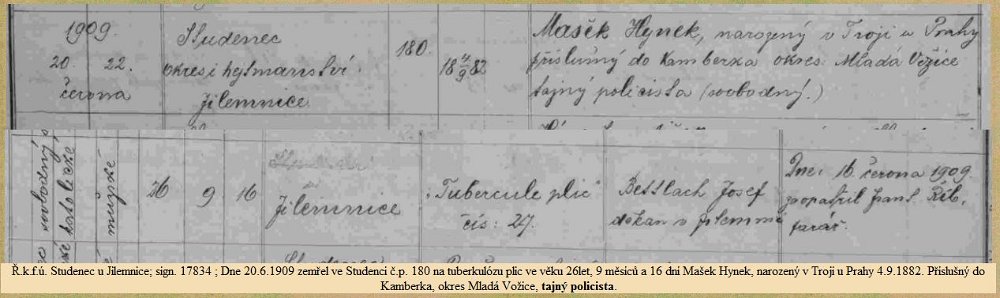 1909.
20 22.
června
Studenec
okres i hejtmanství
Jilemnice
180.
18 4/9 82
Mašek Hynek, narozený v Troji u Prahy
příslušný do Kamberka okres Mladá Vožice
tajný policista (svobodný.)
svobodný
katolické
mužské
26 9 16
Jilemnice
"Tubercule plic"
čís: 27.
Bettlach Josef
děkan v Jilemnici
Dne: 16 června 1909
zaopatřil Frant.
farář.
Ř.k.f.ú. Studenec u Jilemnice; sign. 17834 ; Dne 20.6.1909 zemřel ve Studenci č.p. 180 na tuberkulózu plic ve věku 26let, 9 měsíců a 16 dní Mašek Hynek, narozený v Troji u Prahy 4.9.1882. Příslušný do
Kamberka, okres Mladá Vožice, tajný policista.